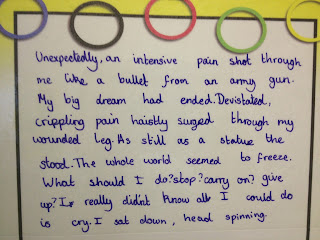 Unexpectedly, an intensive pain shot through
me like a bullet from an army gun.
My big dream had ended. Devistated,
crippling pain haistly surged through my
wounded leg. As still as a statue the
stood. The whole world seemed to freeze.
What should I do? stop? carry on? give
up? I really didn't know all I could do
is cry. I sat down, head spinning.